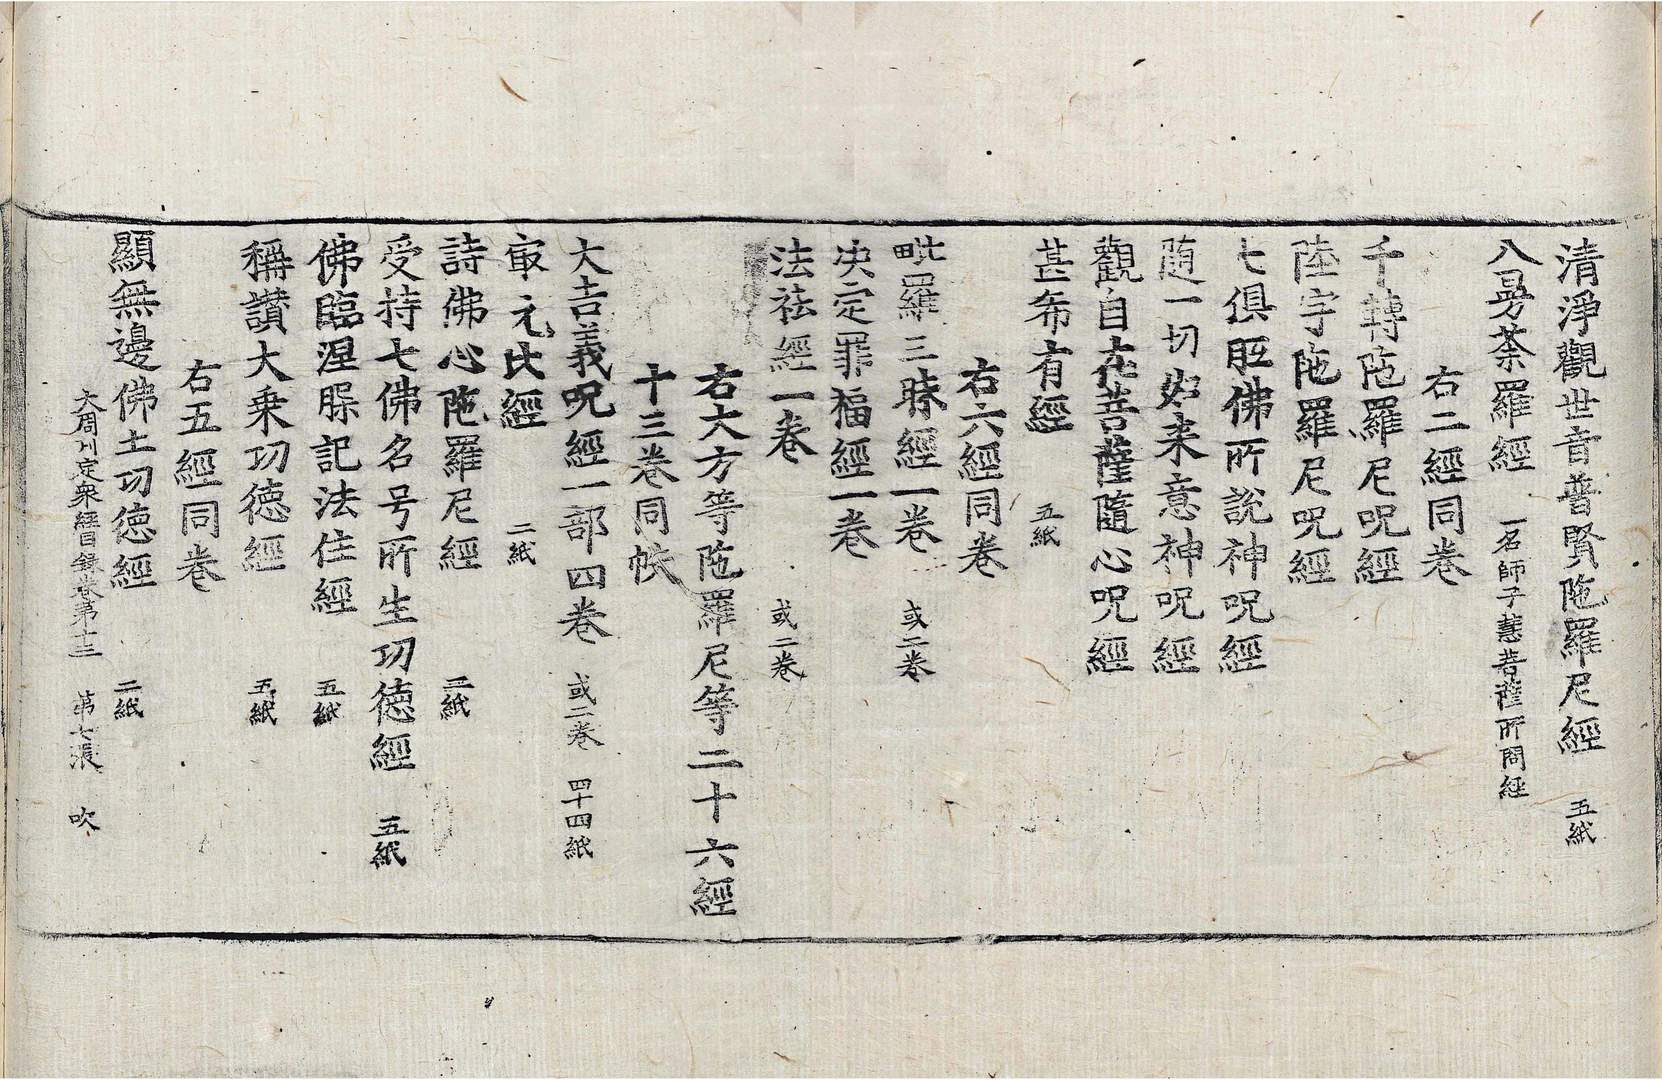 清淨觀世音普賢陁羅尼經 五紙
八曼荼羅經 一名師子慧菩薩所問經
右二經同卷
千轉陁羅尼呪經
陸字陁羅尼呪經
七俱胝佛所說神呪經
随一切如来意神呪經
觀自在菩薩隨心呪經
甚希有經 五紙
右六經同卷
毗羅三昧經一卷 或二卷
决定罪福經一卷
法社經一卷 或二卷
右大方等陁羅尼等二十六經
十三卷同帙
大吉義呪經一部四卷 或二卷 四十四紙
㝡无比經 二紙
諸佛心陁羅尼經 三紙
受持七佛名号所生功德經 五紙
佛臨涅槃記法住經 五紙
稱讃大乗功德經 五紙
右五經同卷
顯無邊佛土功德經 二紙
大周刊定衆經目録卷第十三 第七張 吹